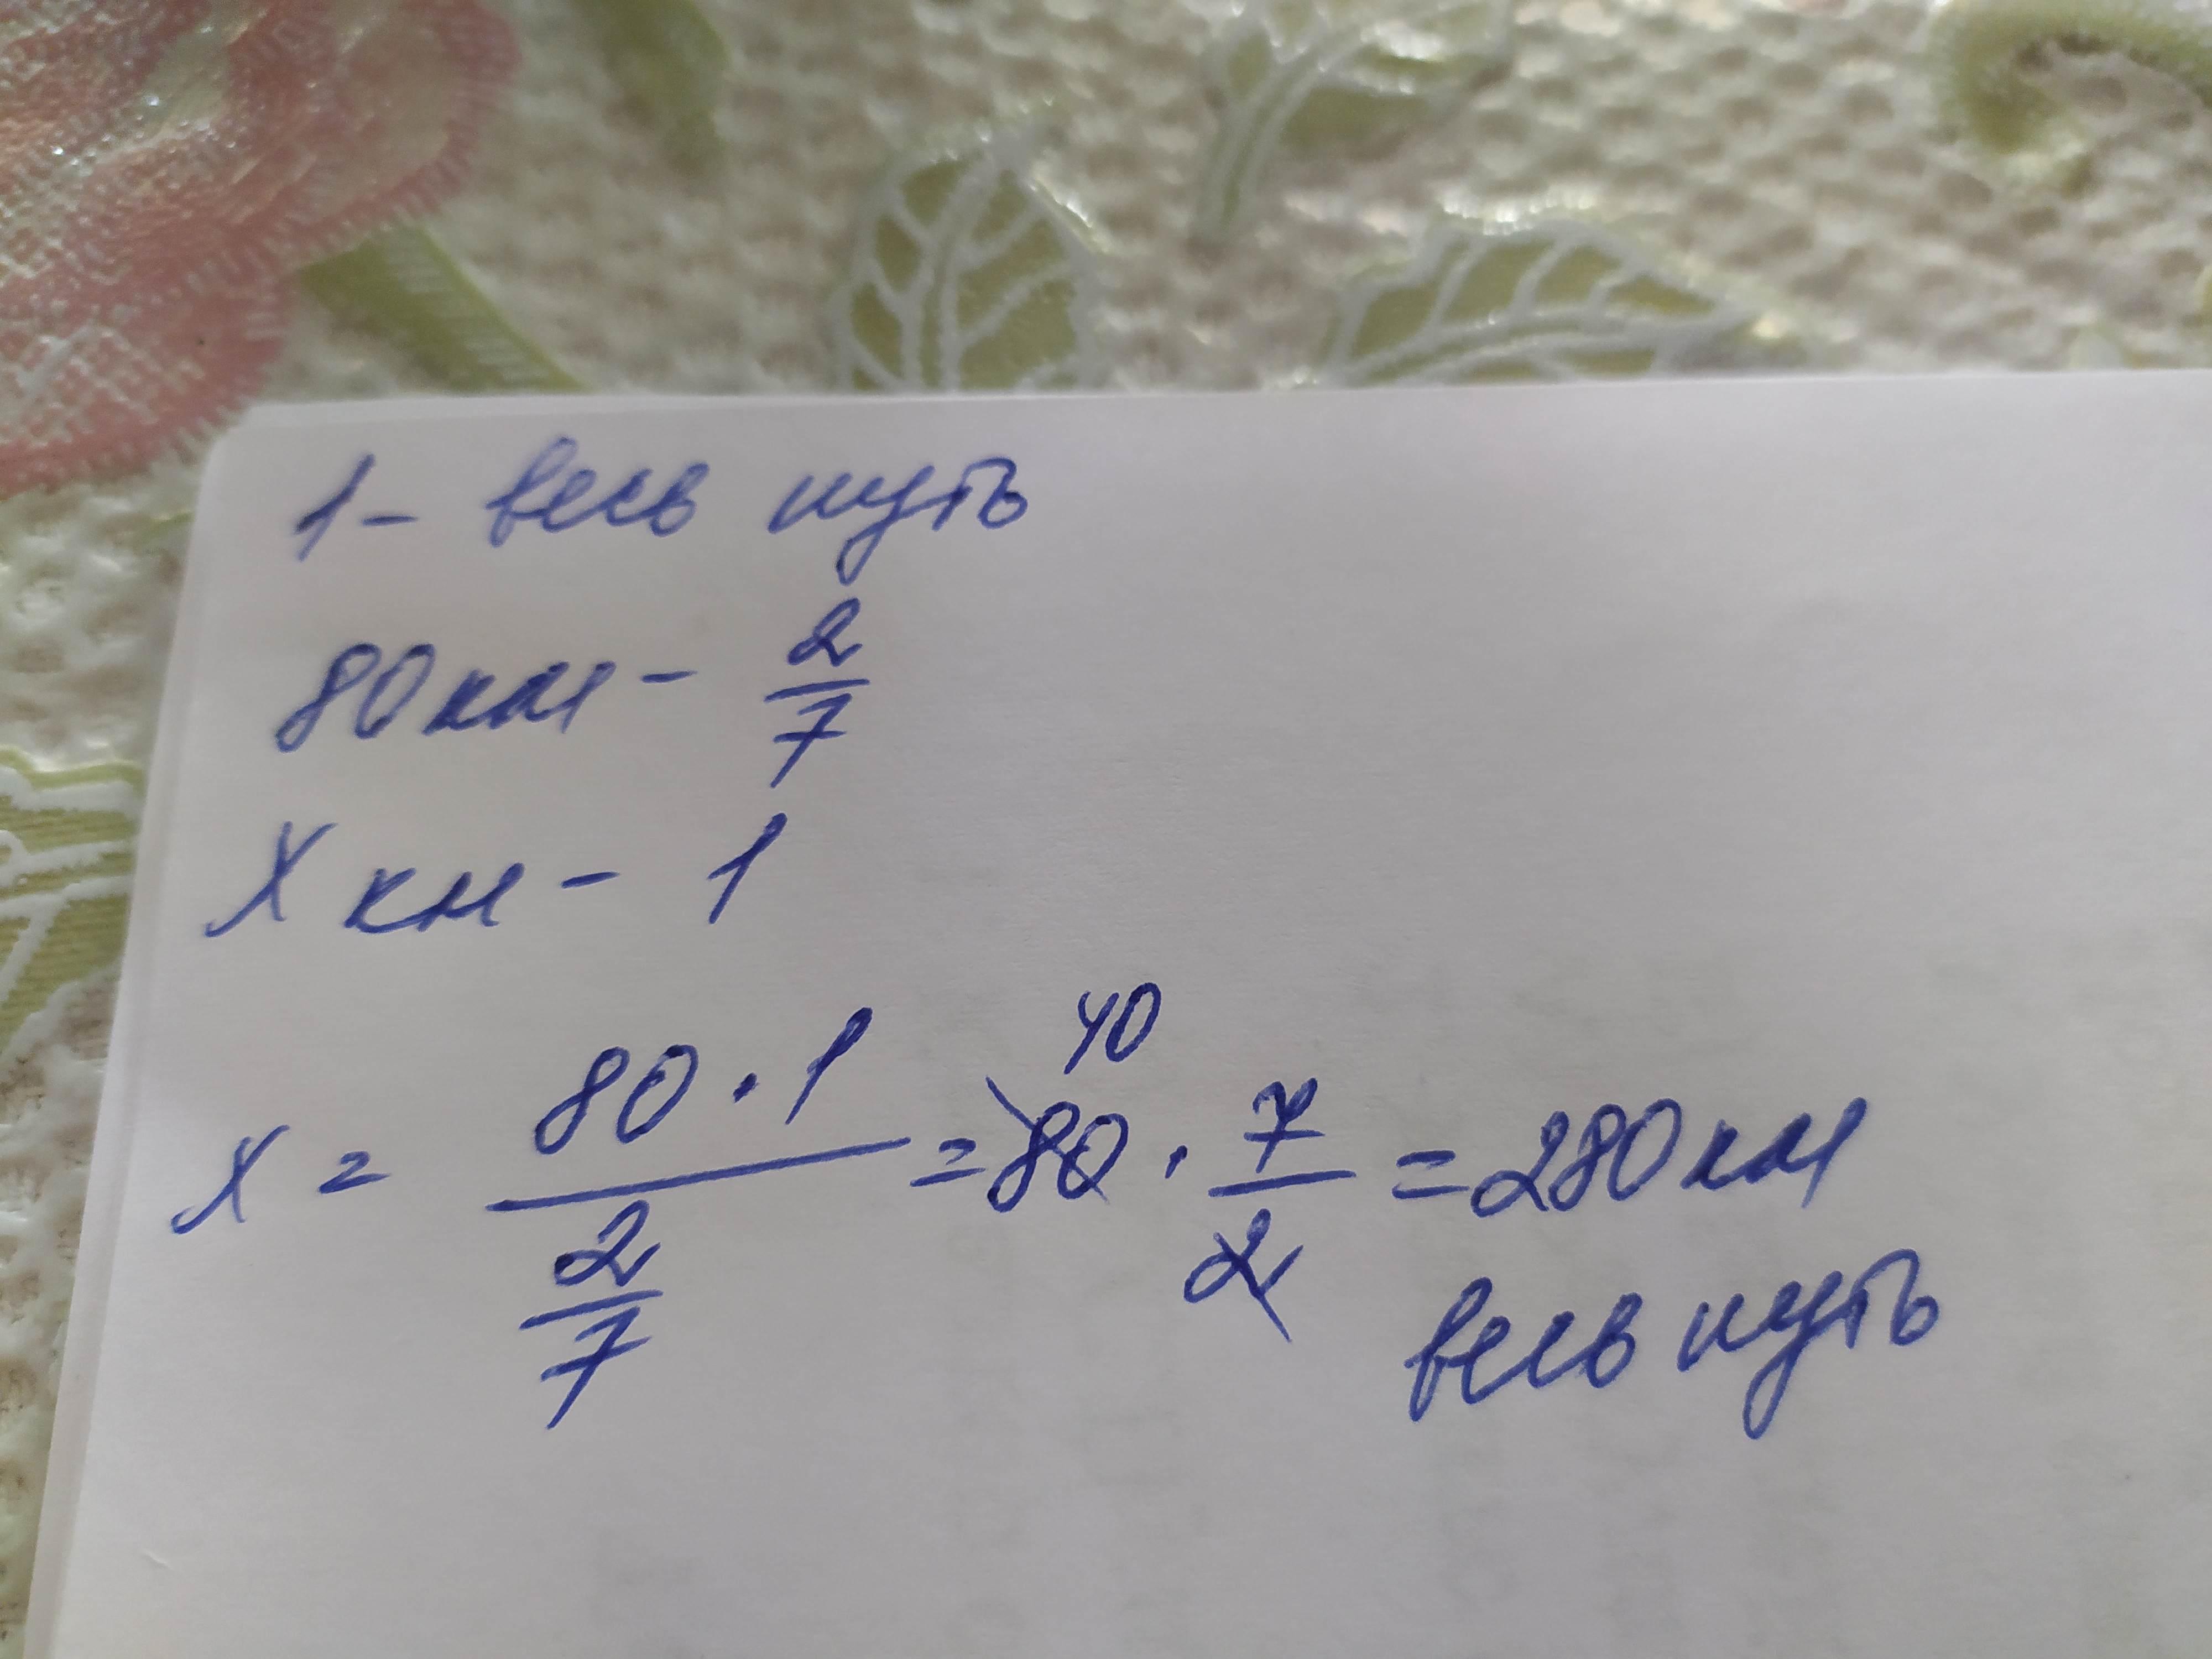 1 - весь путь
80 км - 2/7
х км - 1
х = 80 · 1 / 2/7 = 80 40 · 7/2 = 280 км
весь путь